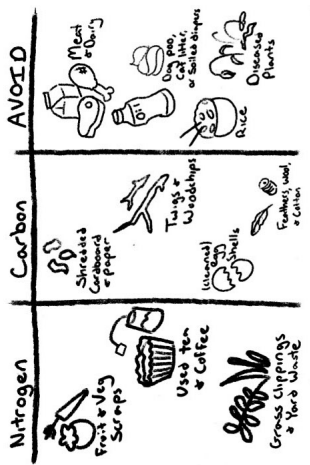 Nitrogen
Fruit & Veg
Scraps
Used tea
& Coffee
Grass Clippings
& Yard Waste
Carbon
Shredded
Cardboard
& paper
Twigs &
Woodchips
(cleaned)
egg
shells
Feathers, wool,
& Cotton
AVOID
Meat
& Dairy
Oil
Dog poo,
Cat litter,
or Soiled diapers
Rice
Diseased
Plants